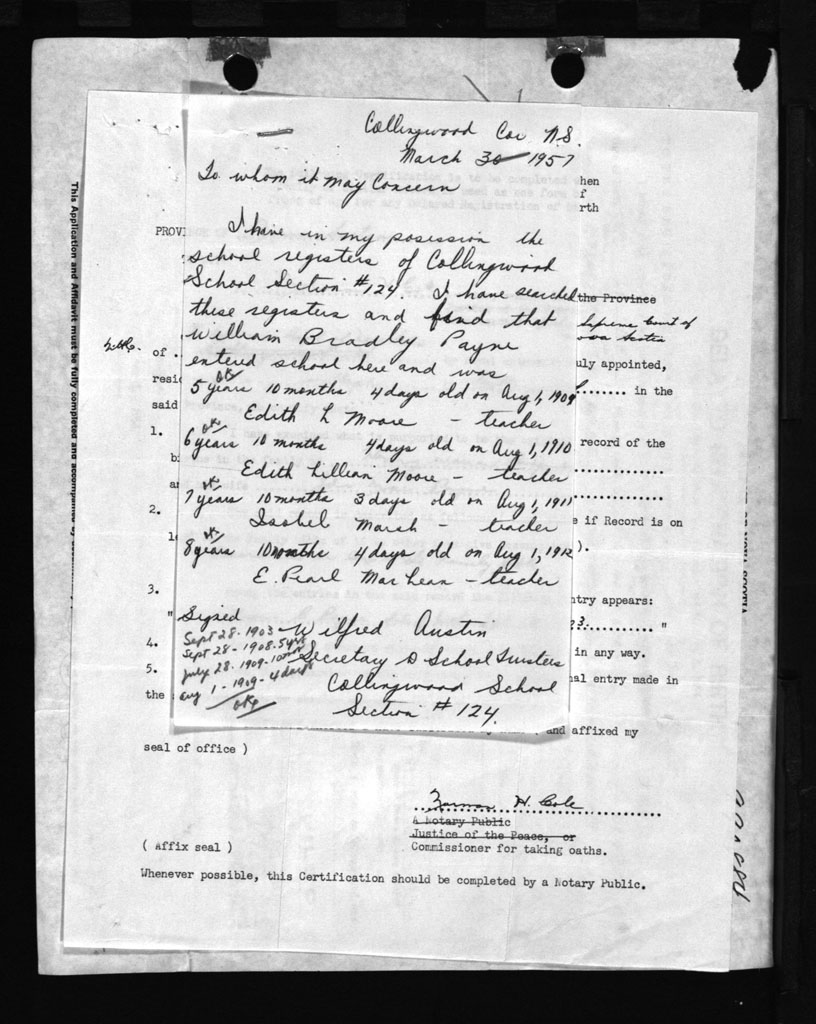 Collingwood Cor N.S.
March 30 1957
To whom it May Concern
I have in my posession the
school registers of Collingwood
School Section #124. I have searched
these registers and find that
William Bradley Payne
entered school here and was
5 years 10 months 4 days old on Aug 1, 1909
Edith L Moore - teacher
6 years 10 months 4 days old on Aug 1, 1910
Edith Lillian Moore - teacher
7 years 10 months 3 days old on Aug 1, 1911
Isobel Marsh - teacher
8 years 10 months 4 days old on Aug 1, 1912
E. Pearl MacLean - teacher
"Signed
Wilfred Austin
Secretary School Trusters
Collingwood School
Section #124.
Sept 28 - 1903
Sept 28 - 1908 - 5 yrs
July 28. 1909 - 10 mos
Aug 1 - 1909 - 4 days
hen
f
rth
PROVI
the Province
Supreme Court of
of .
uly appointed,
resid
in the
said
1.
record of the
b
an
2.
e if Record is on
l
).
3.
ntry appears:
3. "
4.
in any way.
5.
al entry made in
the
and affixed my
seal of office )
H. Cole
A Notary Public
Justice of the Peace, or
Commissioner for taking oaths.
( Affix seal )
Whenever possible, this Certification should be completed by a Notary Public.
This Application and Affidavit must be fully completed and accompanied by